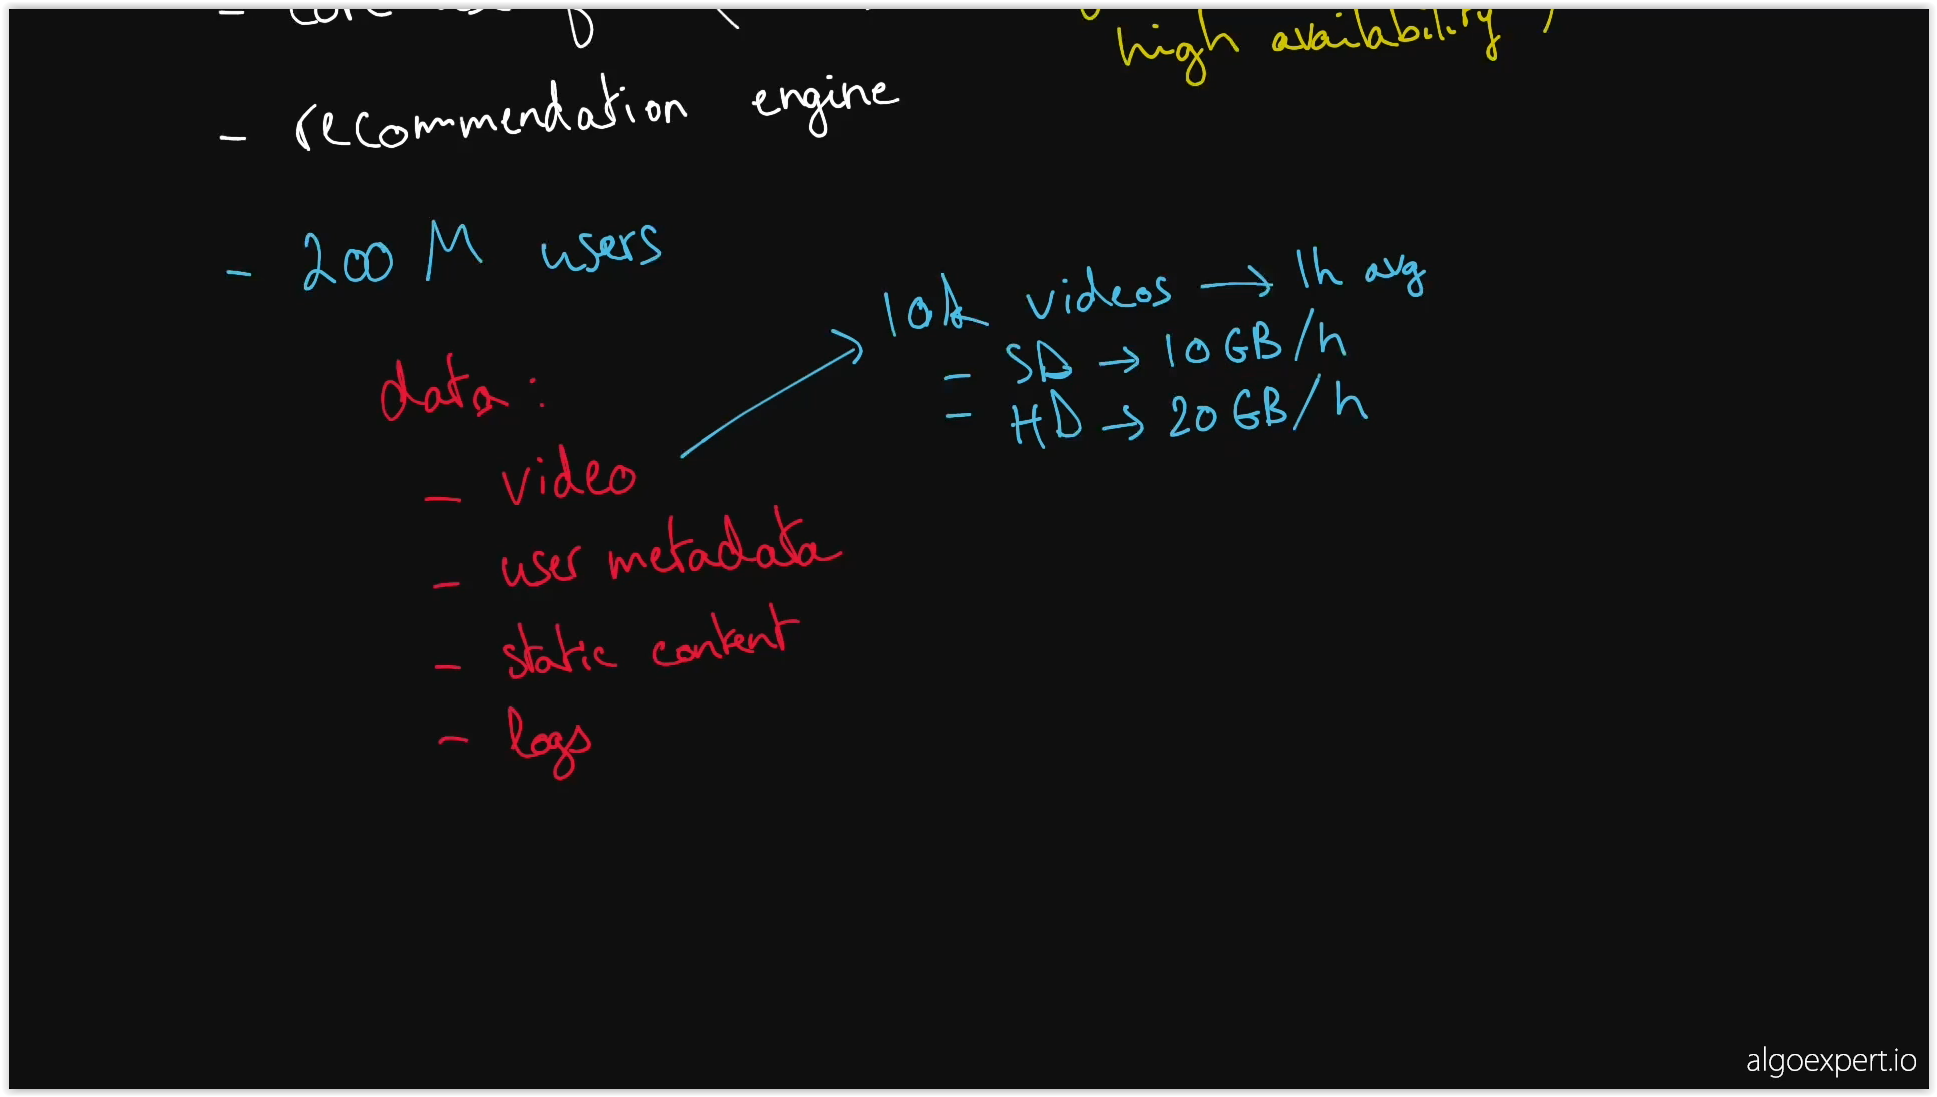 high availability)
- recommendation engine
- 200 M users
10k videos → 1h avg
- SD → 10 GB/h
- HD → 20 GB/h
data:
- video
- user metadata
- static content
- logs
algoexpert.io